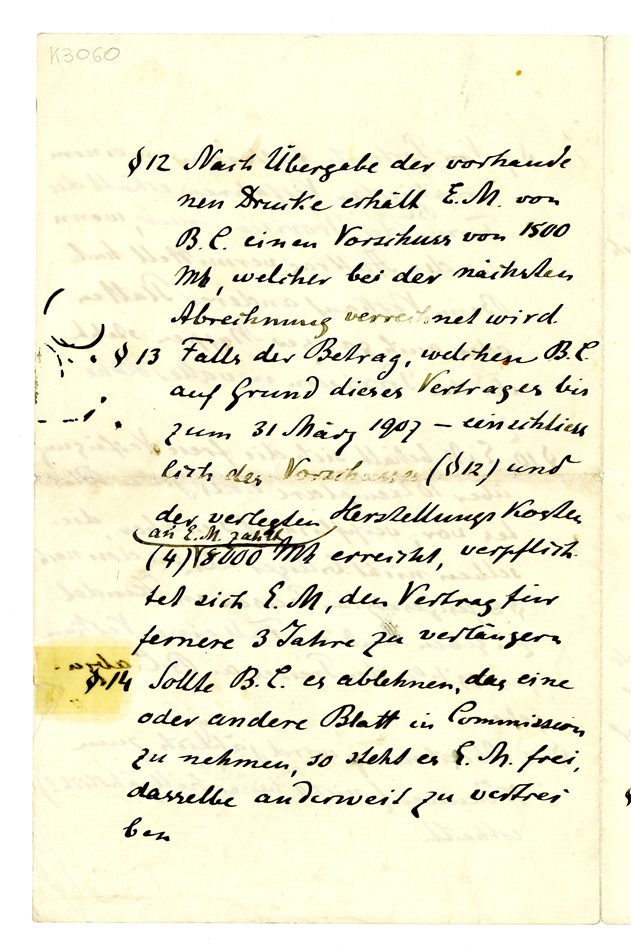 K3060
§ 12 Nach Übergabe der vorhande
nen Drucke erhält E. M. von
B. C. einen Vorschuss von 1500
Mk, welcher bei der nächsten
Abrechnung verrechnet wird.
§ 13 Falls der Betrag, welchen B. C.
auf Grund dieses Vertrages bis
zum 31 März 1907 – einschliess
lich des Vorschusses (§ 12) und
der verlegten Herstellungskosten
an E. M. zahlt
(4) 8000 Mk erreicht, verpflich
tet sich E. M., den Vertrag für
fernere 3 Jahre zu verlängern
§ 14 Sollte B. C. es ablehnen, das eine
oder andere Blatt in Commission
zu nehmen, so steht es E. M. frei,
dasselbe anderweit zu vertrei
ben